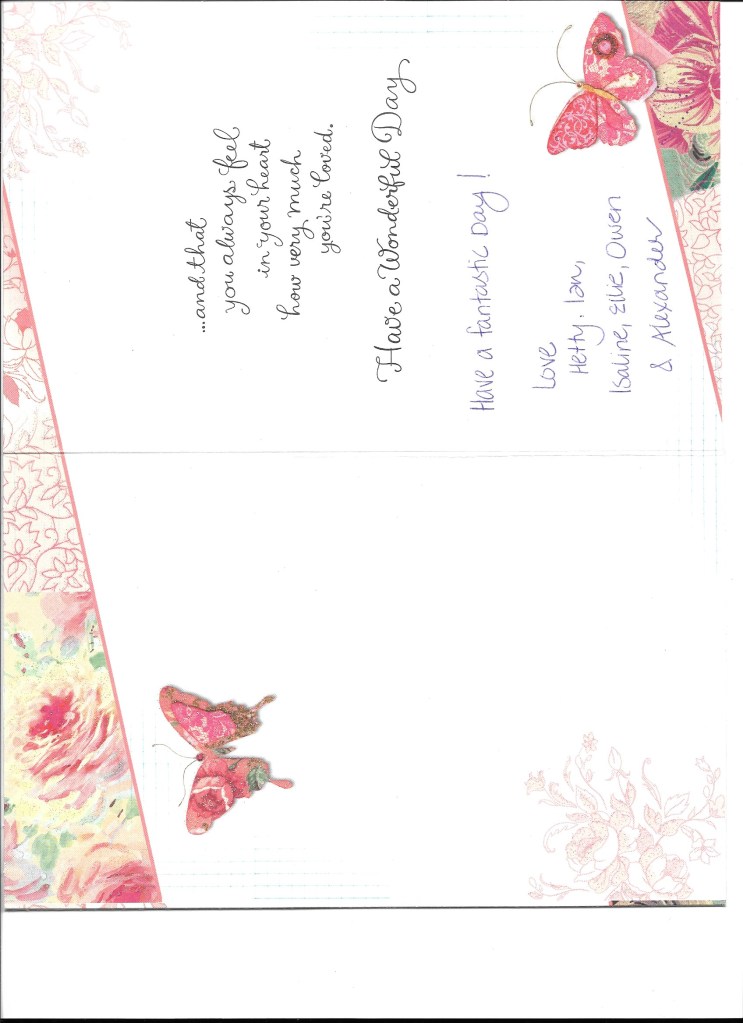 ...and that
you always feel
in your heart
how very much
you're loved.
Have a Wonderful Day
Have a fantastic Day!
Love
Hetty. Ian,
Isaline, Ellie, Owen
& Alexander